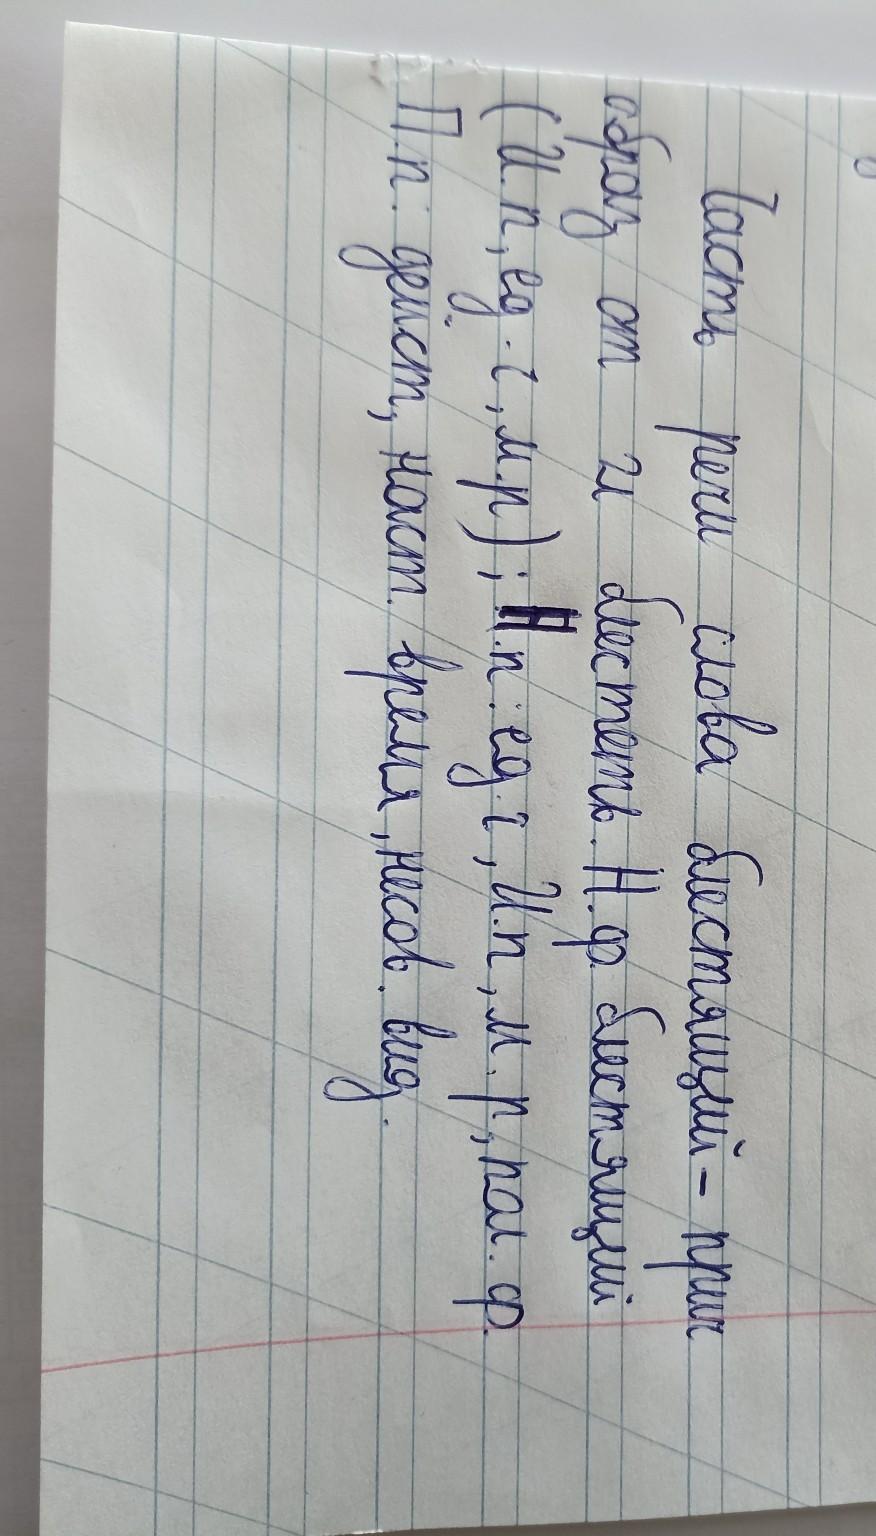 Часть речи слова блестящий - прич
образ от гл блестеть. Н.ф. блестящий
(И.п, ед.ч, м.р); Н.п: ед.ч, И.п, м.р, пол.ф.
П.п: дейст, наст. время, несов. вид.